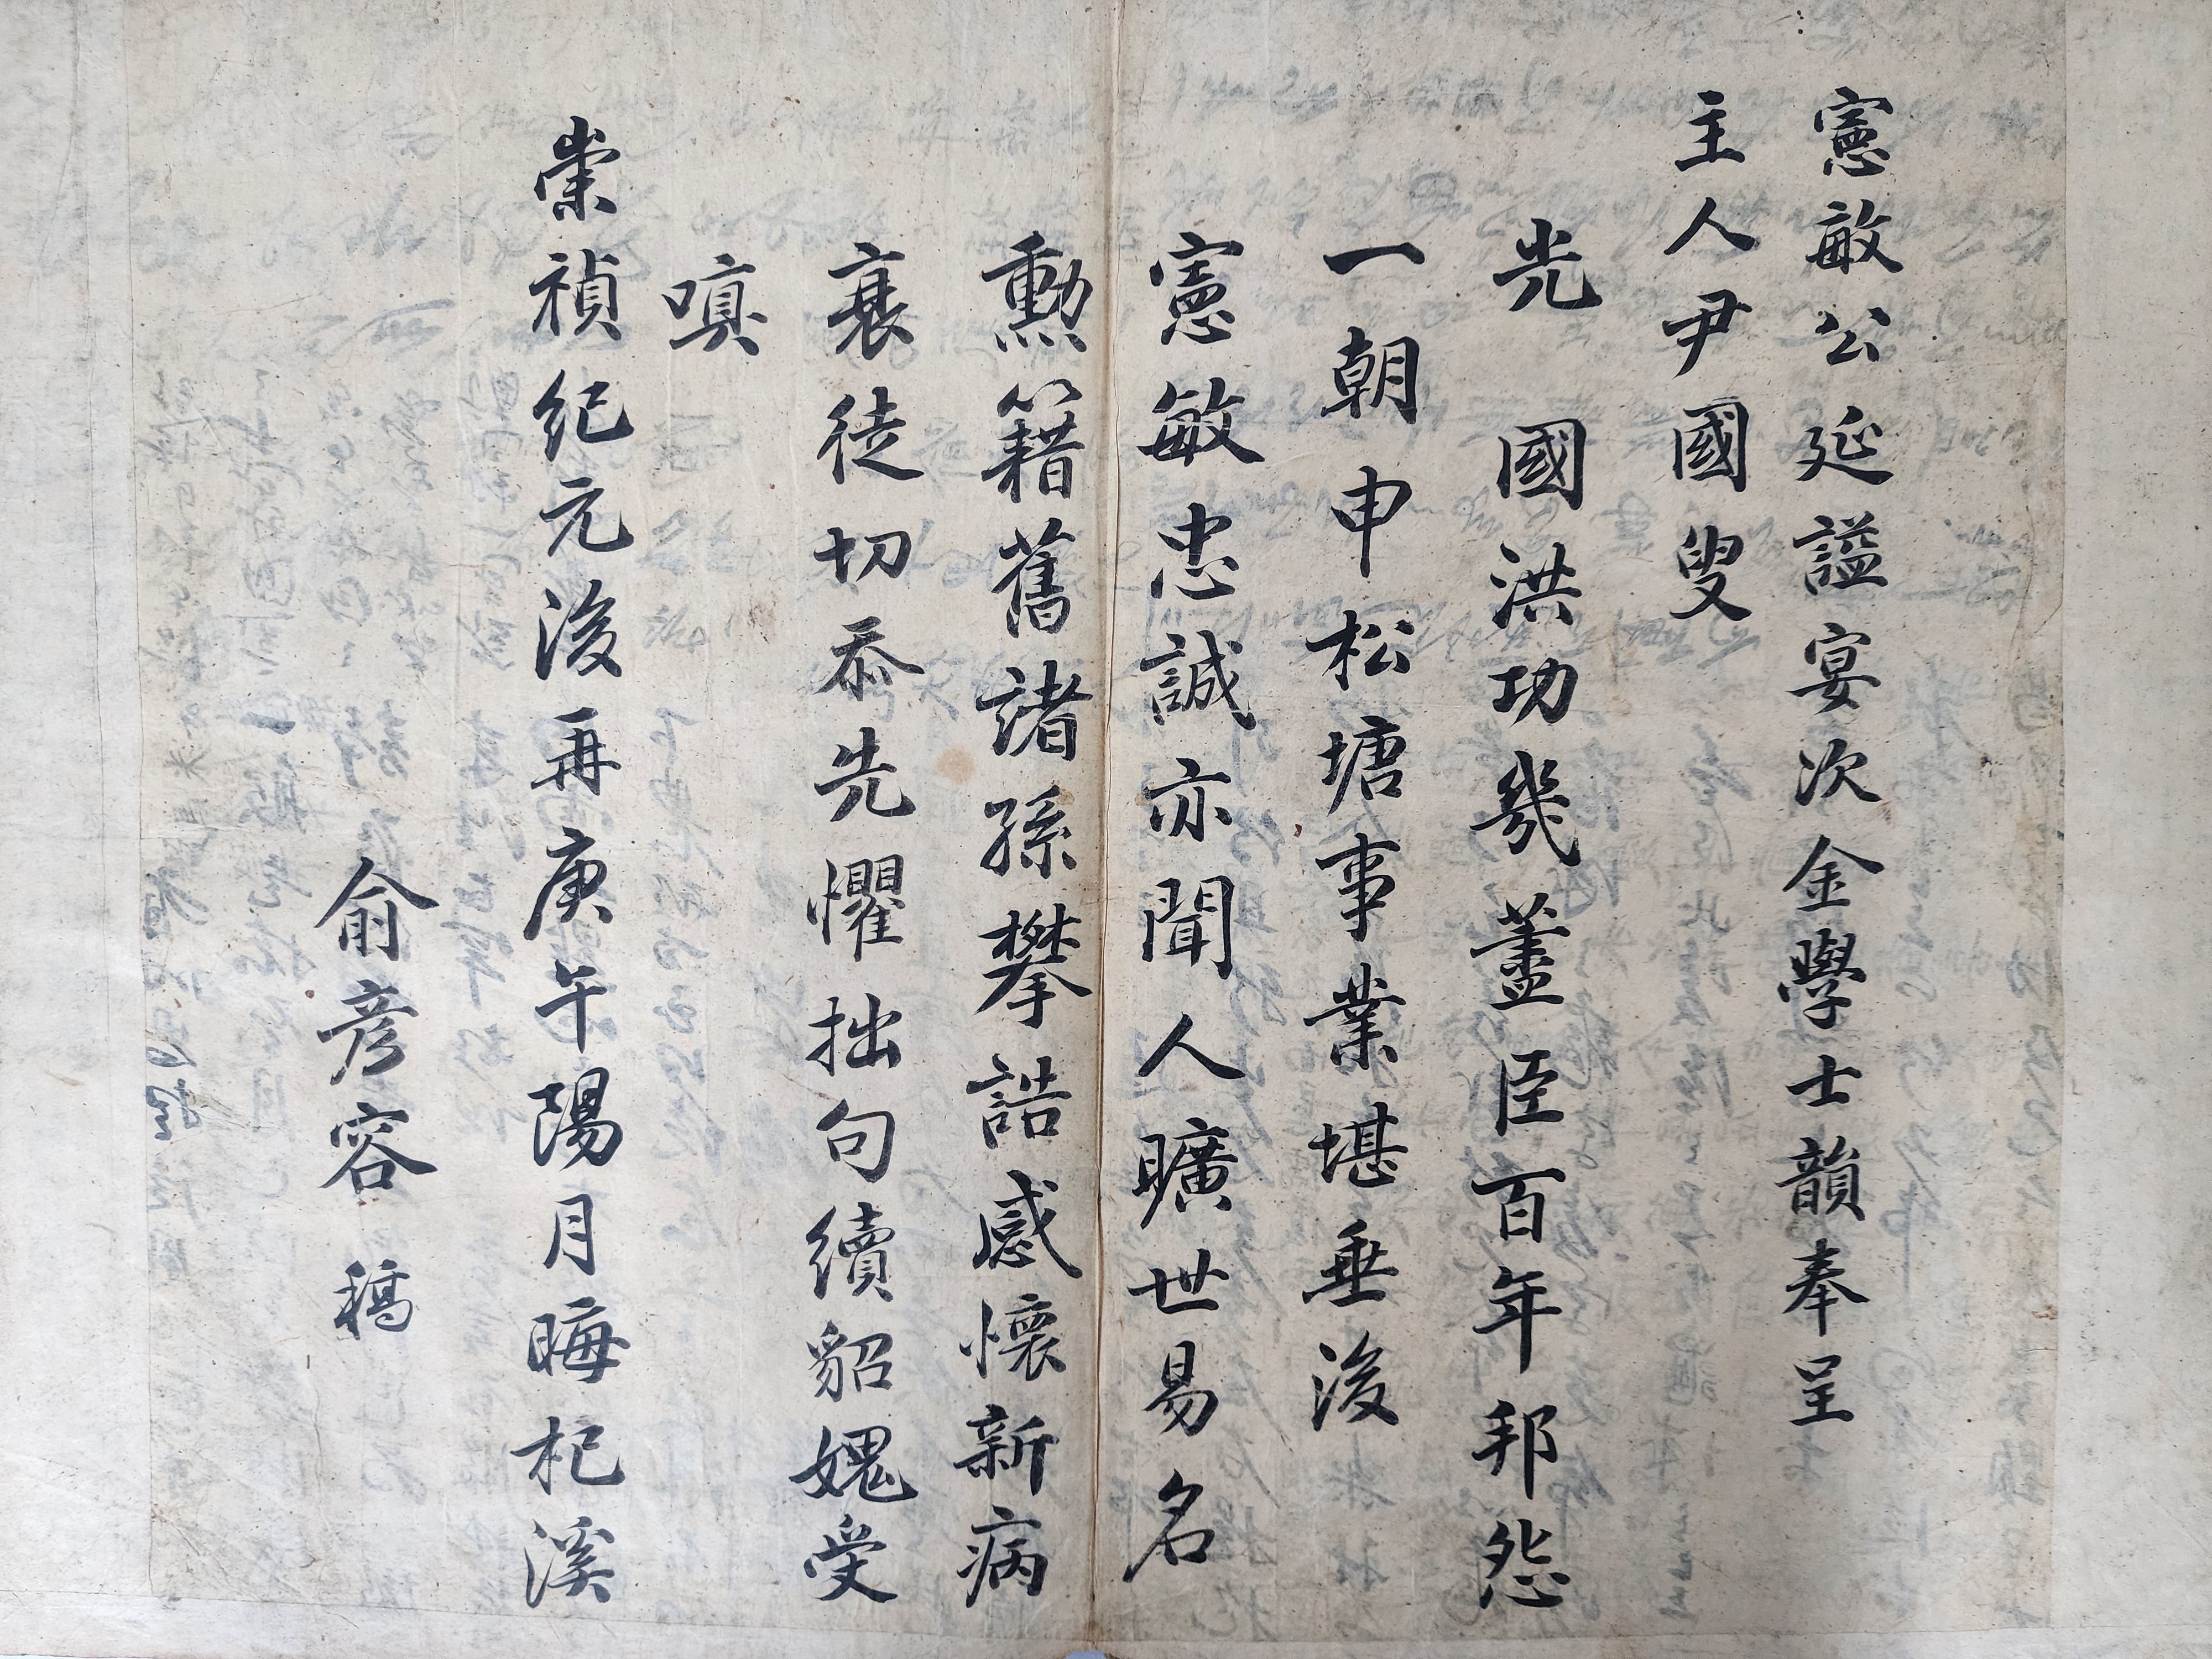 憲敏公延諡宴次金學士韻奉呈
主人尹國叟
光國洪功幾藎臣百年邦怨
一朝申松塘事業堪垂後
憲敏忠誠亦聞人曠世易名
勳籍舊諸孫攀誥感懷新病
衰徒切忝先懼拙句續貂媿受
嗔
崇禎紀元後再庚午陽月晦杞溪
俞彦容稿